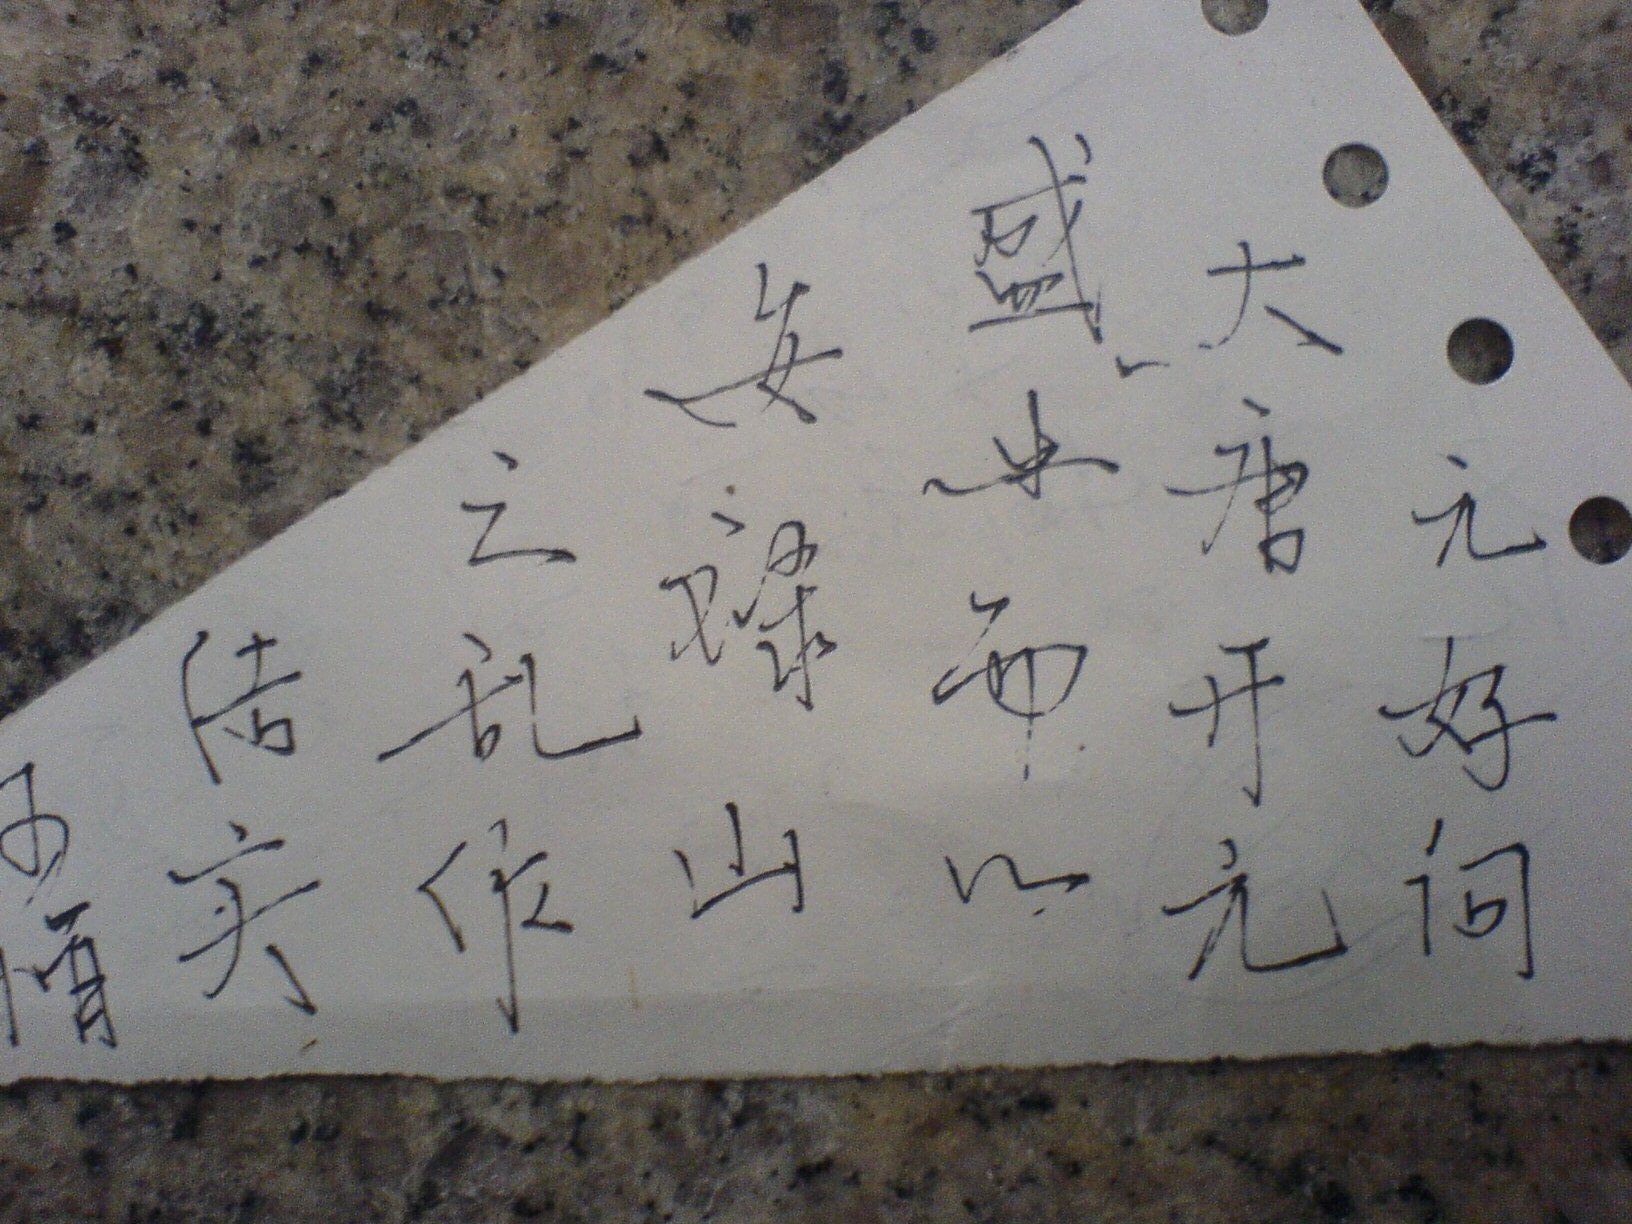 元好问
大唐开元
盛世而以
安禄山
之乱作
实